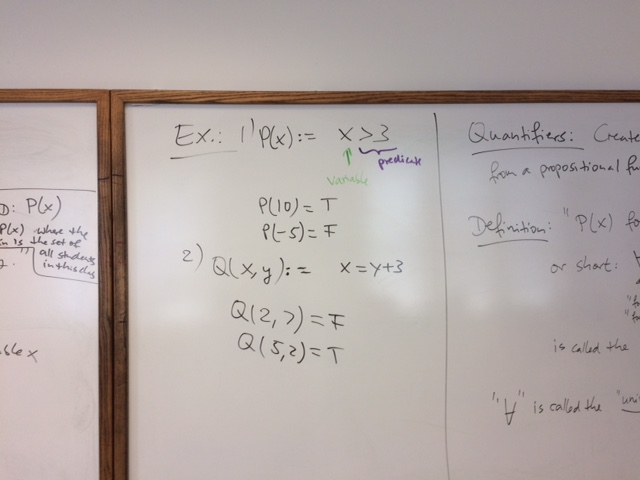 D: P(x)
P(x) where the
in is the set of
all students
in this clas
ble x
Ex.: 1) P(x):= x > 3
variable
predicate
P(10) = T
P(-5) = F
2) Q(x,y):= x = y+3
Q(2,7) = F
Q(5,2) = T
Quantifiers: Create
from a propositional fu
Definition: "P(x) fo
or short: ∀
is called the
"∀" is called the "uni